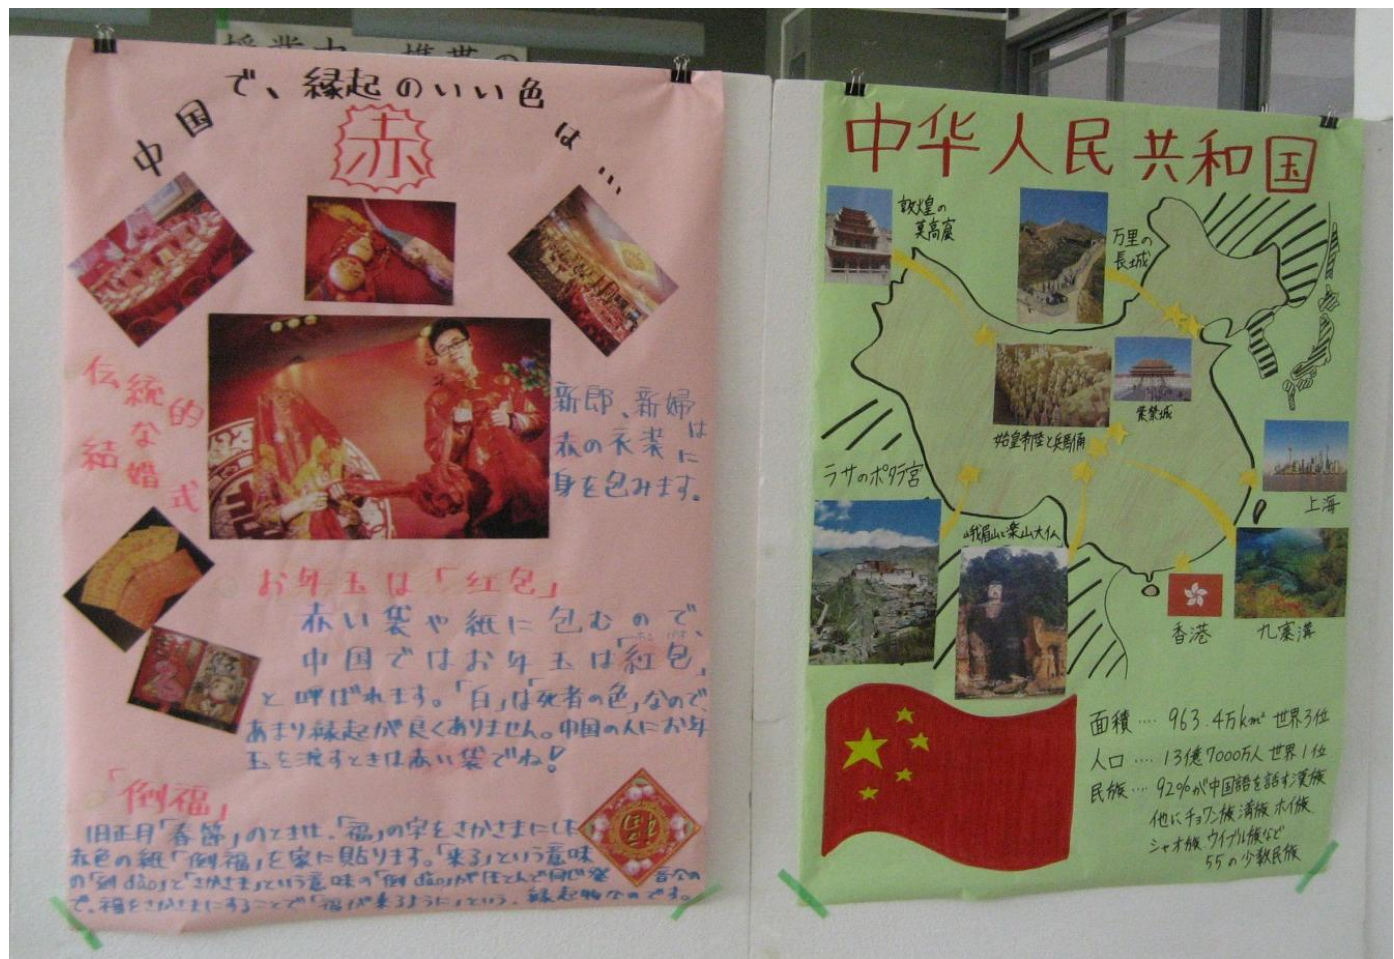 中国で、縁起のいい色は…
赤
伝統的な
結婚式
新郎、新婦は
赤の衣装に
身を包みます。
お年玉は「紅包」
赤い袋や紙に包むので、
中国ではお年玉は「紅包」
と呼ばれます。「白」は「死者の色」なので、
あまり縁起が良くありません。中国の人にお年
玉を渡すときは赤い袋でね!
「倒福」
旧正月「春節」のときは、「福」の字をさかさまにした
赤色の紙「倒福」を家に貼ります。「来る」という意味
の「到dào」と「さかさま」という意味の「倒dào」がほとんど同じ発音なの
で、福をさかさまにすることで「福が来るように」という、縁起物なのです。
中华人民共和国
敦煌の
莫高窟
万里の
長城
紫禁城
始皇帝陵と兵馬俑
ラサのポタラ宮
上海
峨眉山と楽山大仏
香港
九寨溝
面積‥‥963.4万km² 世界3位
人口‥‥13億7000万人 世界1位
民族‥‥92%が中国語を話す漢族
他にチョワン族 満族 ホイ族
シャオ族 ウイグル族など
55の少数民族